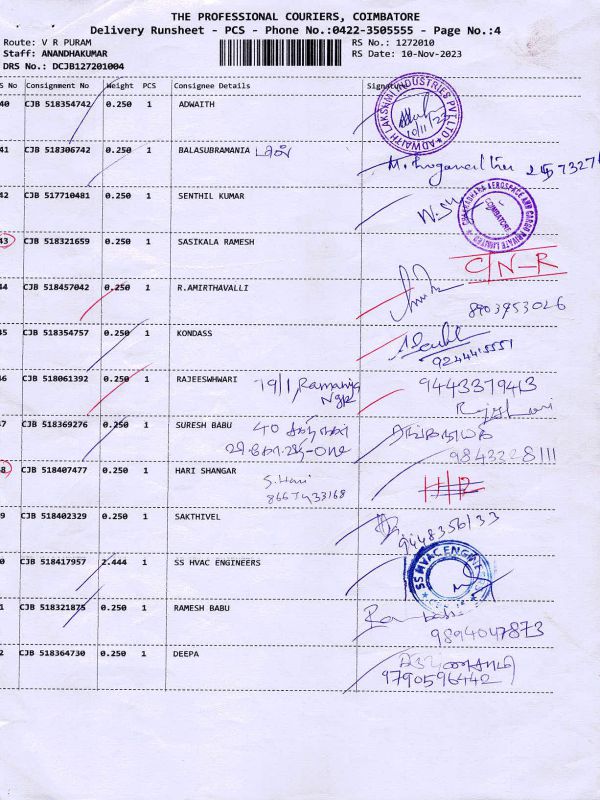 THE PROFESSIONAL COURIERS, COIMBATORE
Delivery Runsheet - PCS - Phone No.:0422-3505555 - Page No.:4
Route: V R PURAM RS No.: 1272010
Staff: ANANDHAKUMAR RS Date: 10-Nov-2023
DRS No.: DCJB127201004
S No Consignment No Weight PCS Consignee Details Signature
40 CJB 518354742 0.250 1 ADWAITH
ADWAITH LAKSHMI INDUSTRIES PVT LTD
10/11/23
41 CJB 518306742 0.250 1 BALASUBRAMANIA
42 CJB 517710481 0.250 1 SENTHIL KUMAR
COIMBATORE
43 CJB 518321659 0.250 1 SASIKALA RAMESH
C/N-R
44 CJB 518457042 0.250 1 R.AMIRTHAVALLI
8903953026
45 CJB 518354757 0.250 1 KONDASS
9244415551
46 CJB 518061392 0.250 1 RAJEESWHWARI 79/1, Ramaniya Ngr 9443379413
47 CJB 518369276 0.250 1 SURESH BABU 40
9843228111
48 CJB 518407477 0.250 1 HARI SHANGAR S. Hari
8667433168
49 CJB 518402329 0.250 1 SAKTHIVEL
9448356133
0 CJB 518417957 2.444 1 SS HVAC ENGINEERS
SS HVAC ENGINEERS
1 CJB 518321875 0.250 1 RAMESH BABU
9894047873
2 CJB 518364730 0.250 1 DEEPA
9790596442